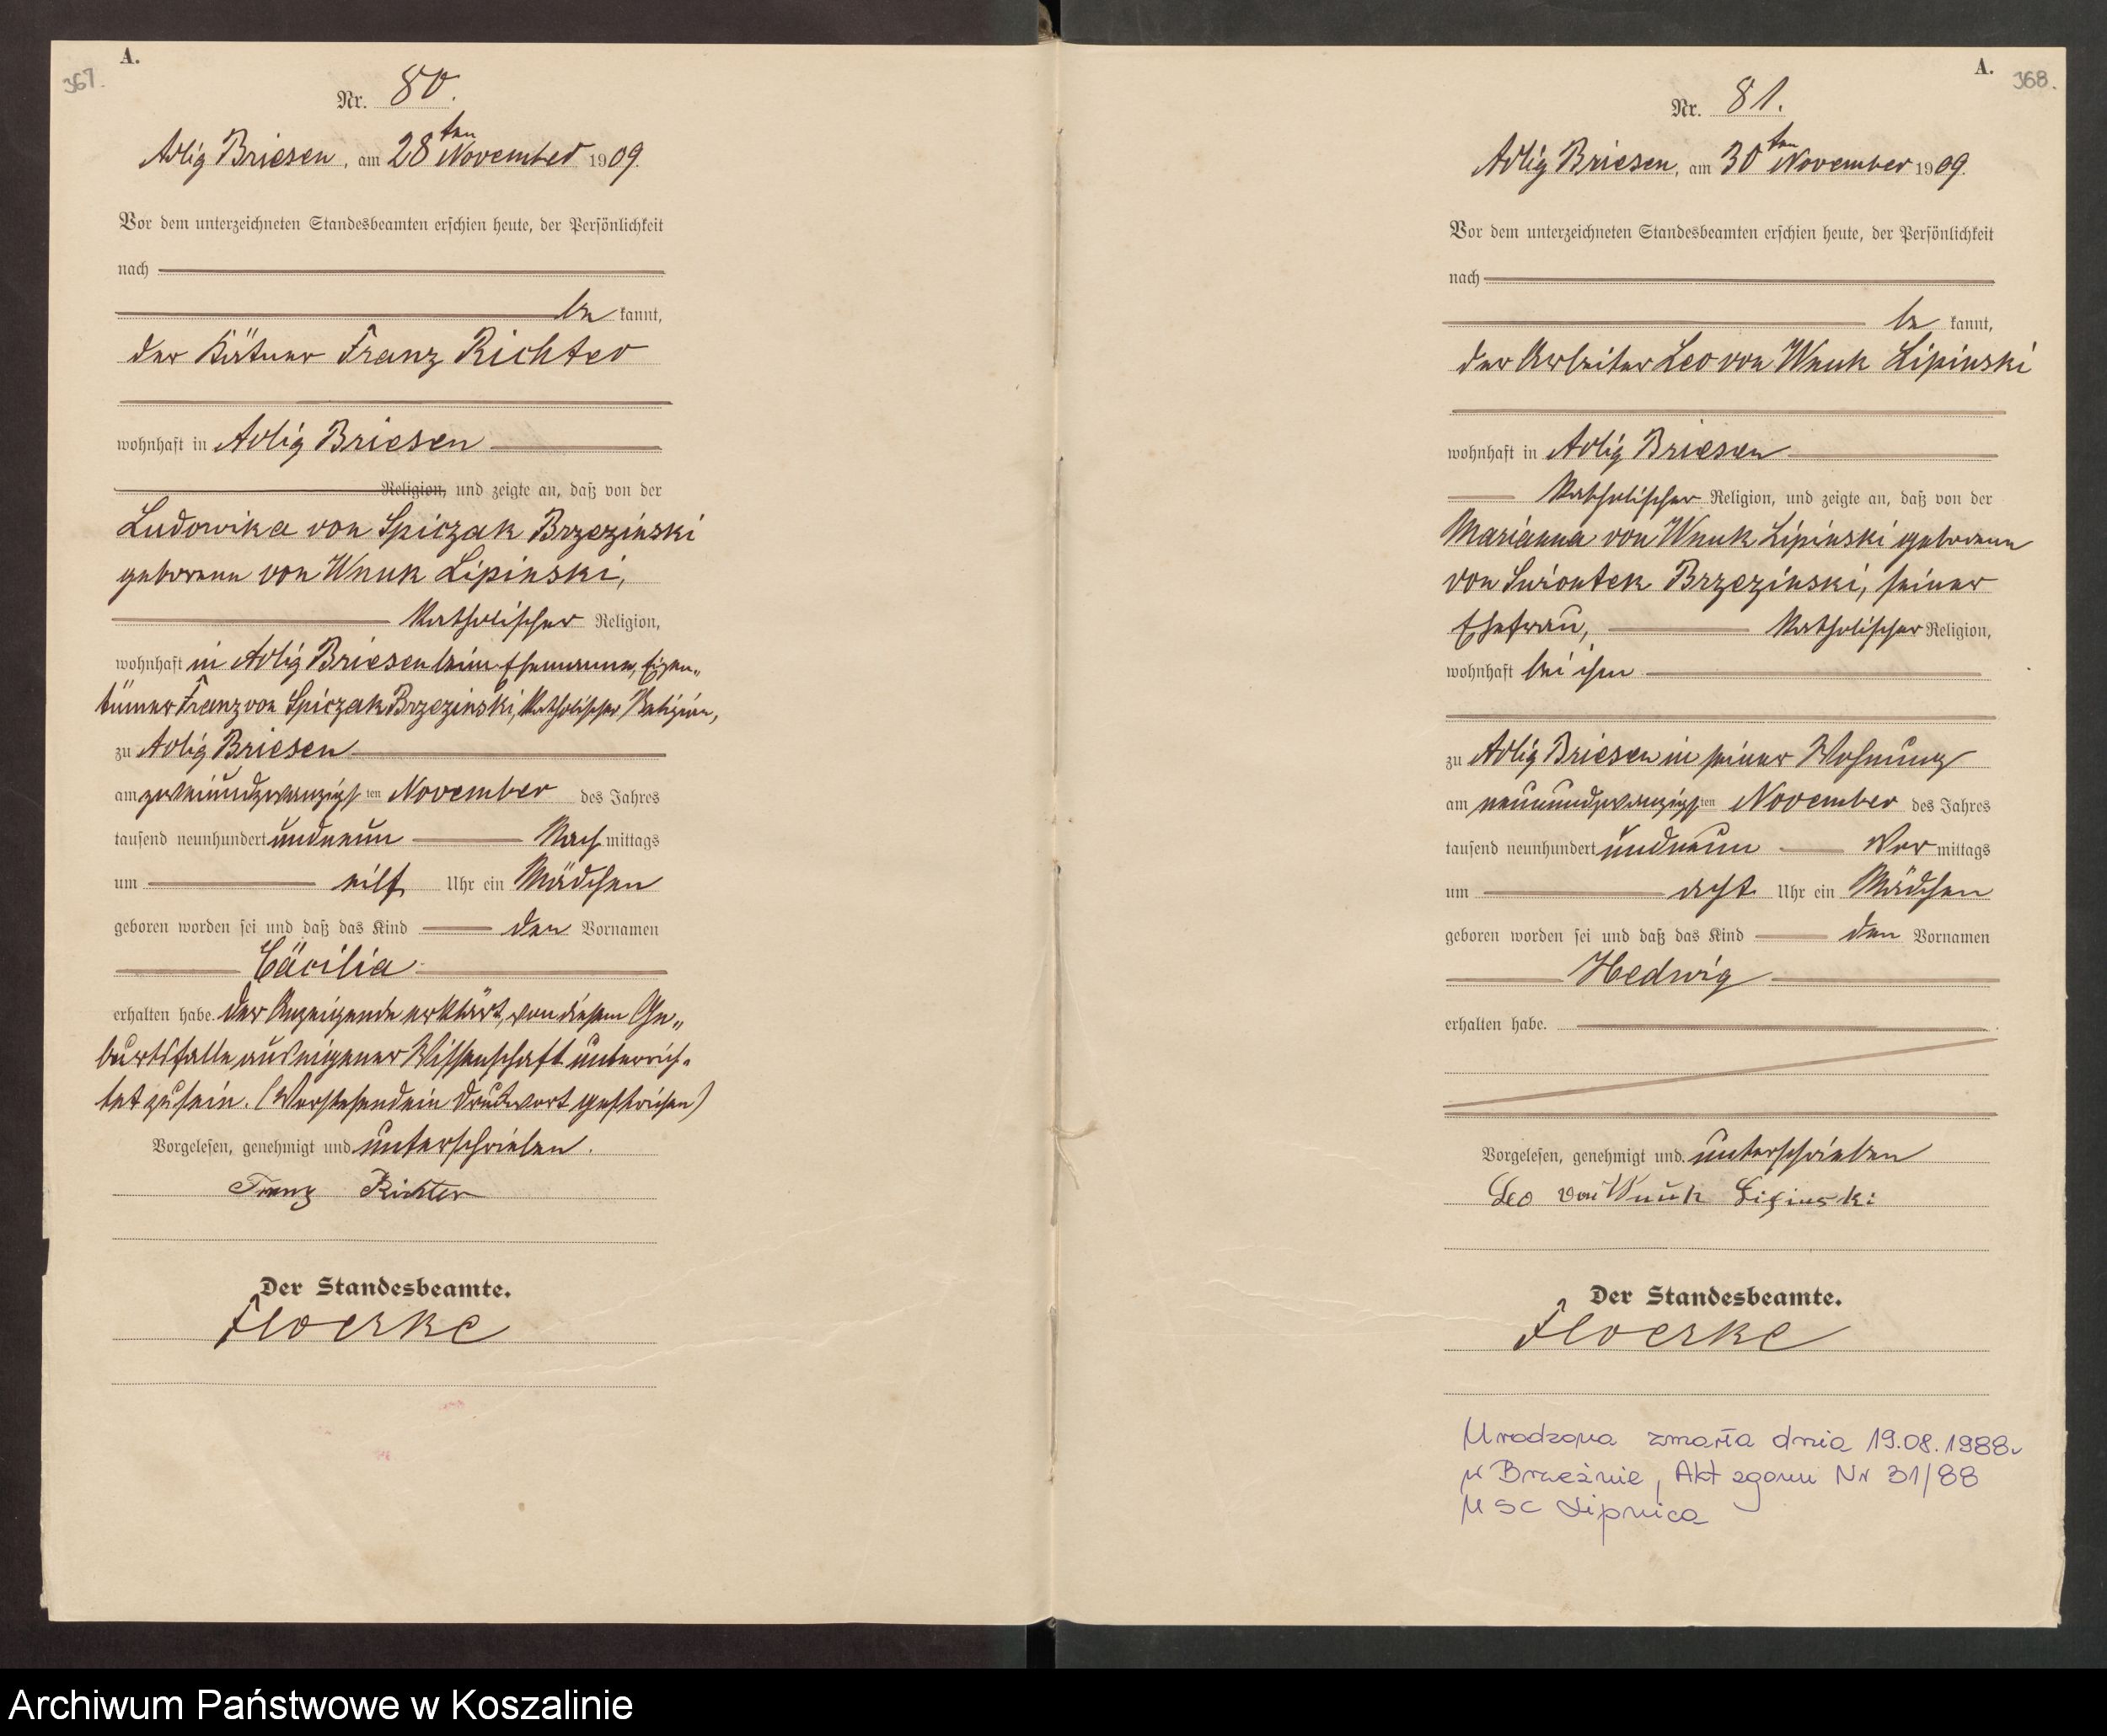 367.
A.
Nr. 80.
Adlig Briesen, am 28ten November 1909.
Vor dem unterzeichneten Standesbeamten erschien heute, der Persönlichkeit
nach
be kannt,
der Kätner Franz Richter
wohnhaft in Adlig Briesen
Religion, und zeigte an, daß von der
Ludowika von Spiczak Brzezinski
geborenen von Wnuk Lipinski,
katholischer Religion,
wohnhaft in Adlig Briesen beim Ehemanne, Eigen„
tümer Franz von Spiczak Brzezinski, katholischer Religion,
zu Adlig Briesen
am zweiundzwanzigsten November des Jahres
tausend neunhundert undneun Nach mittags
um eilf Uhr ein Mädchen
geboren worden sei und daß das Kind den Vornamen
Cäcilia
erhalten habe. Der Anzeigende erklärt, von diesem Ge„
burtsfalle aus eigener Wissenschaft unterrich„
tet zu sein. (Vorstehend ein Druckwort gestrichen)
Vorgelesen, genehmigt und unterschrieben.
Franz Richter
Der Standesbeamte.
Floerke
A.
368.
Nr. 81.
Adlig Briesen, am 30ten November 1909.
Vor dem unterzeichneten Standesbeamten erschien heute, der Persönlichkeit
nach
be kannt,
der Arbeiter Leo von Wnuk Lipinski
wohnhaft in Adlig Briesen
katholischer Religion, und zeigte an, daß von der
Marianna von Wnuk Lipinski geborenen
von Swiontek Brzezinski, seiner
Ehefrau, katholischer Religion,
wohnhaft bei ihm
zu Adlig Briesen in seiner Wohnung
am neunundzwanzigsten November des Jahres
tausend neunhundert undneun Vor mittags
um acht Uhr ein Mädchen
geboren worden sei und daß das Kind den Vornamen
Hedwig
erhalten habe.
Vorgelesen, genehmigt und unterschrieben
Leo von Wnuk Lipinski
Der Standesbeamte.
Floerke
Urodzona zmarła dnia 19.08.1988r
w Brzeźnie, Akt zgonu Nr 31/88
USC Lipnica
Archiwum Państwowe w Koszalinie